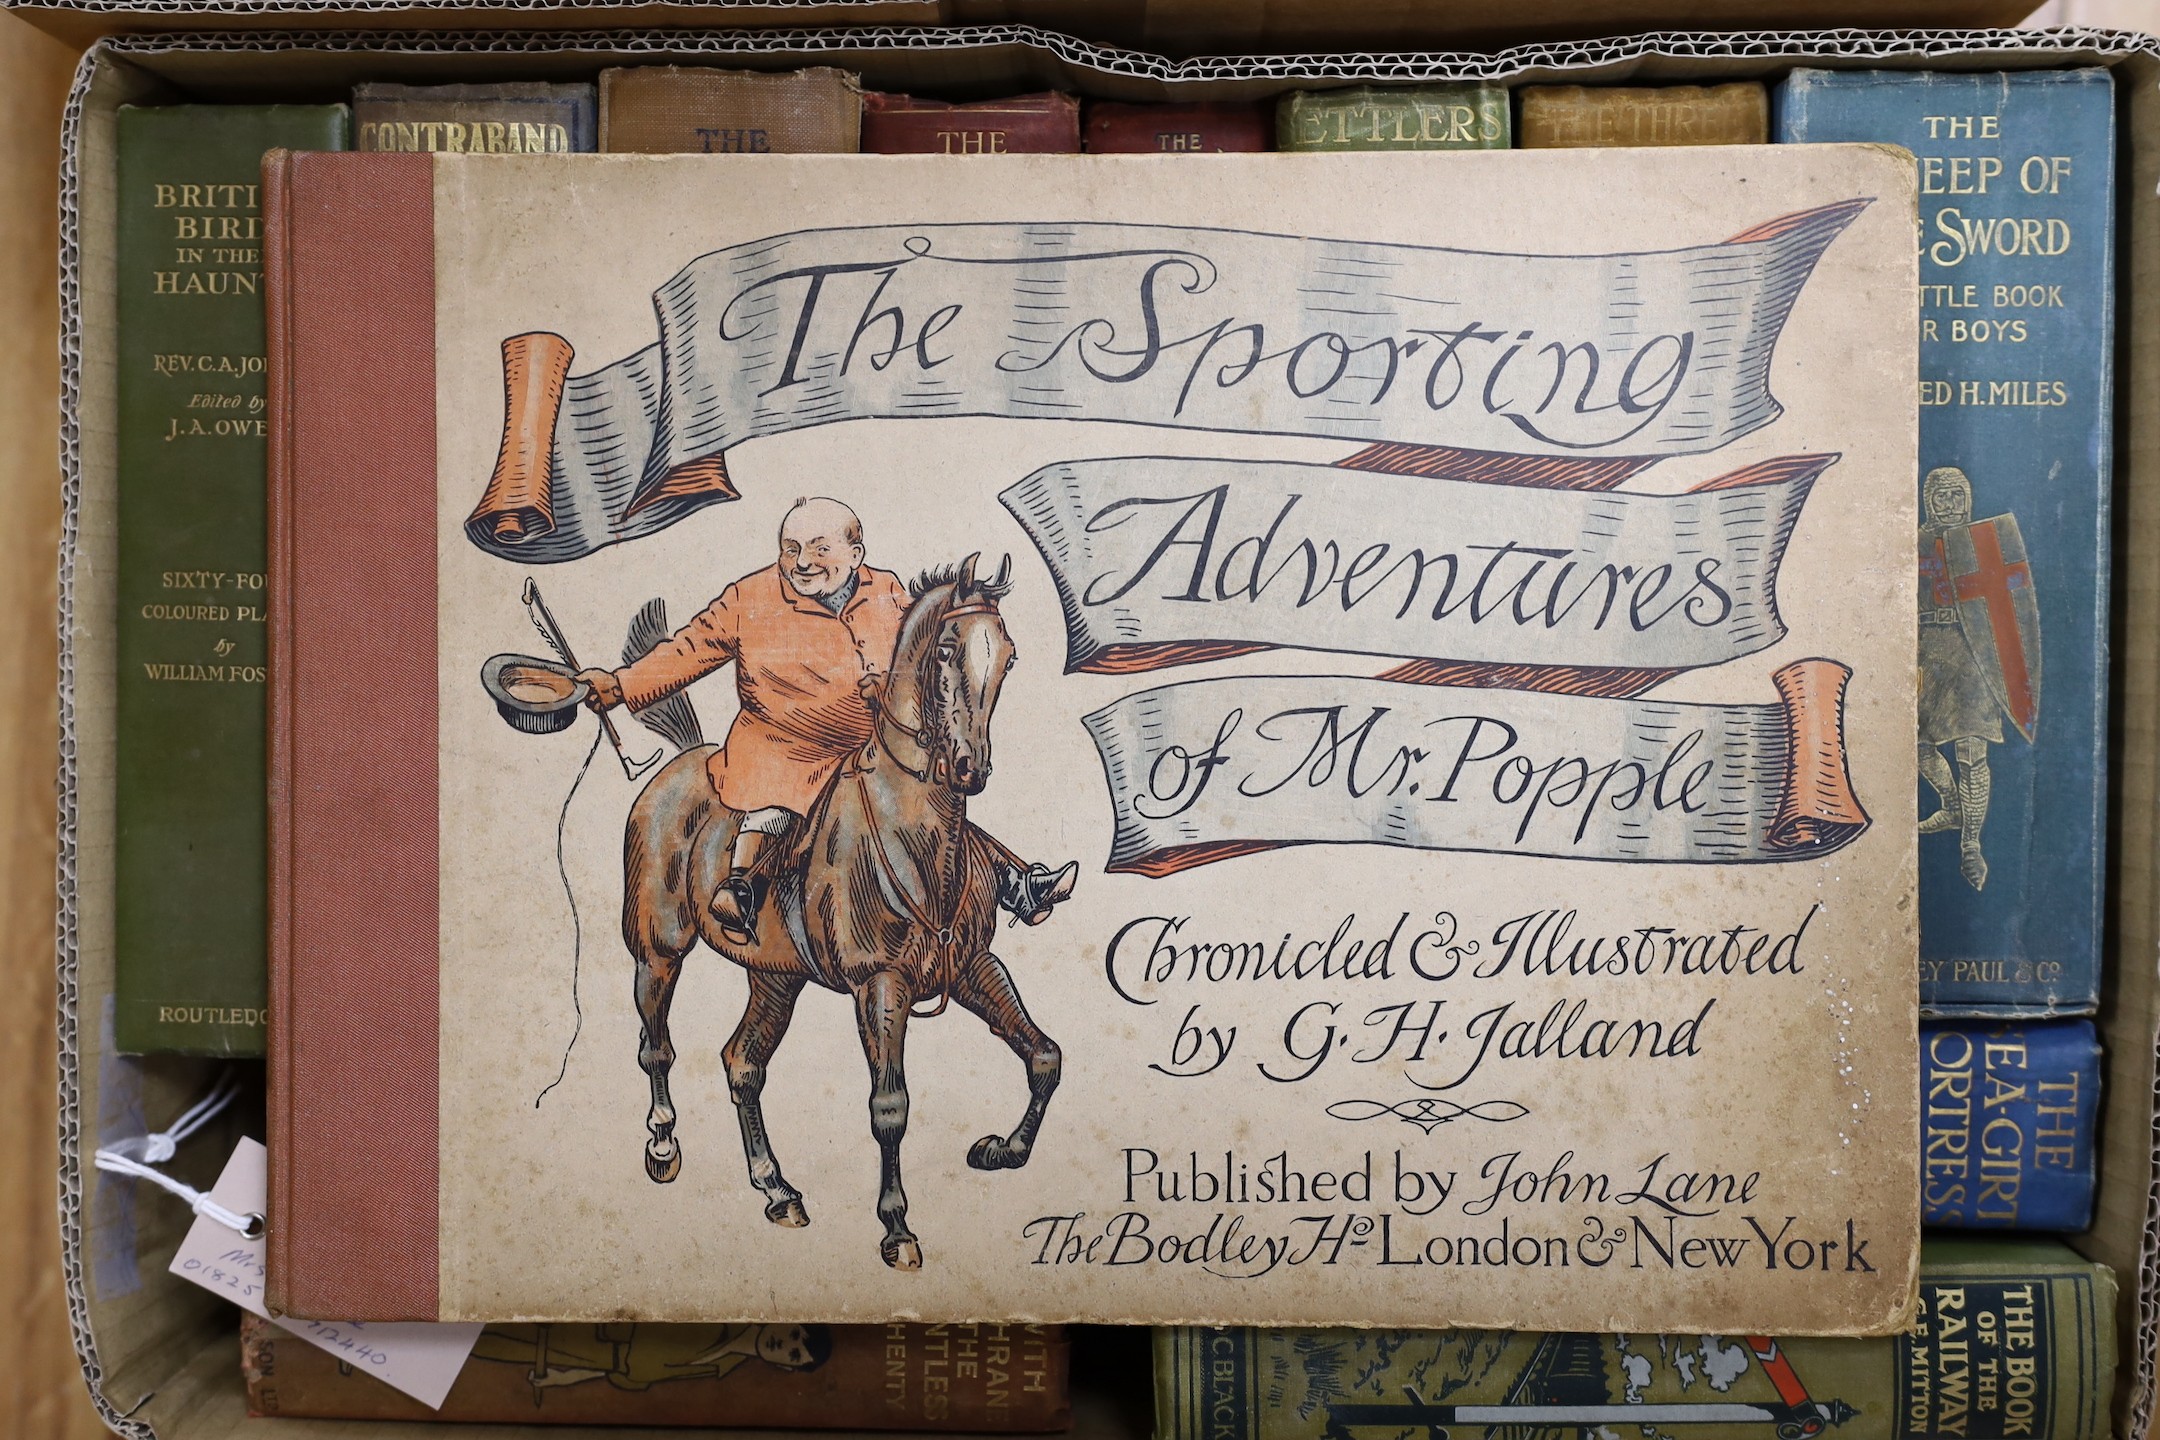 The Sporting
Adventures
of Mr. Popple
Chronicled & Illustrated
by G. H. Jalland
Published by John Lane
The Bodley Hº London & New York
BRITI
BIRD
IN THE
HAUNT
REV. C. A. JO
Edited by
J. A. OWE
SIXTY-FOU
COLOURED PLA
by
WILLIAM FOS
ROUTLEDG
CONTRABAND
THE
THE
THE
ETTLERS
THE THRE
THE
EEP OF
E SWORD
TTLE BOOK
R BOYS
ED H. MILES
EY PAUL & Cº
THE
SEA-GIRT
ORTRESS
THE BOOK
OF THE
RAILWAY
G.E. MITTON
& C BLACK
WITH
HRAN
THE
NTLESS
HENTY
SON LTD
Mrs
01825
712440